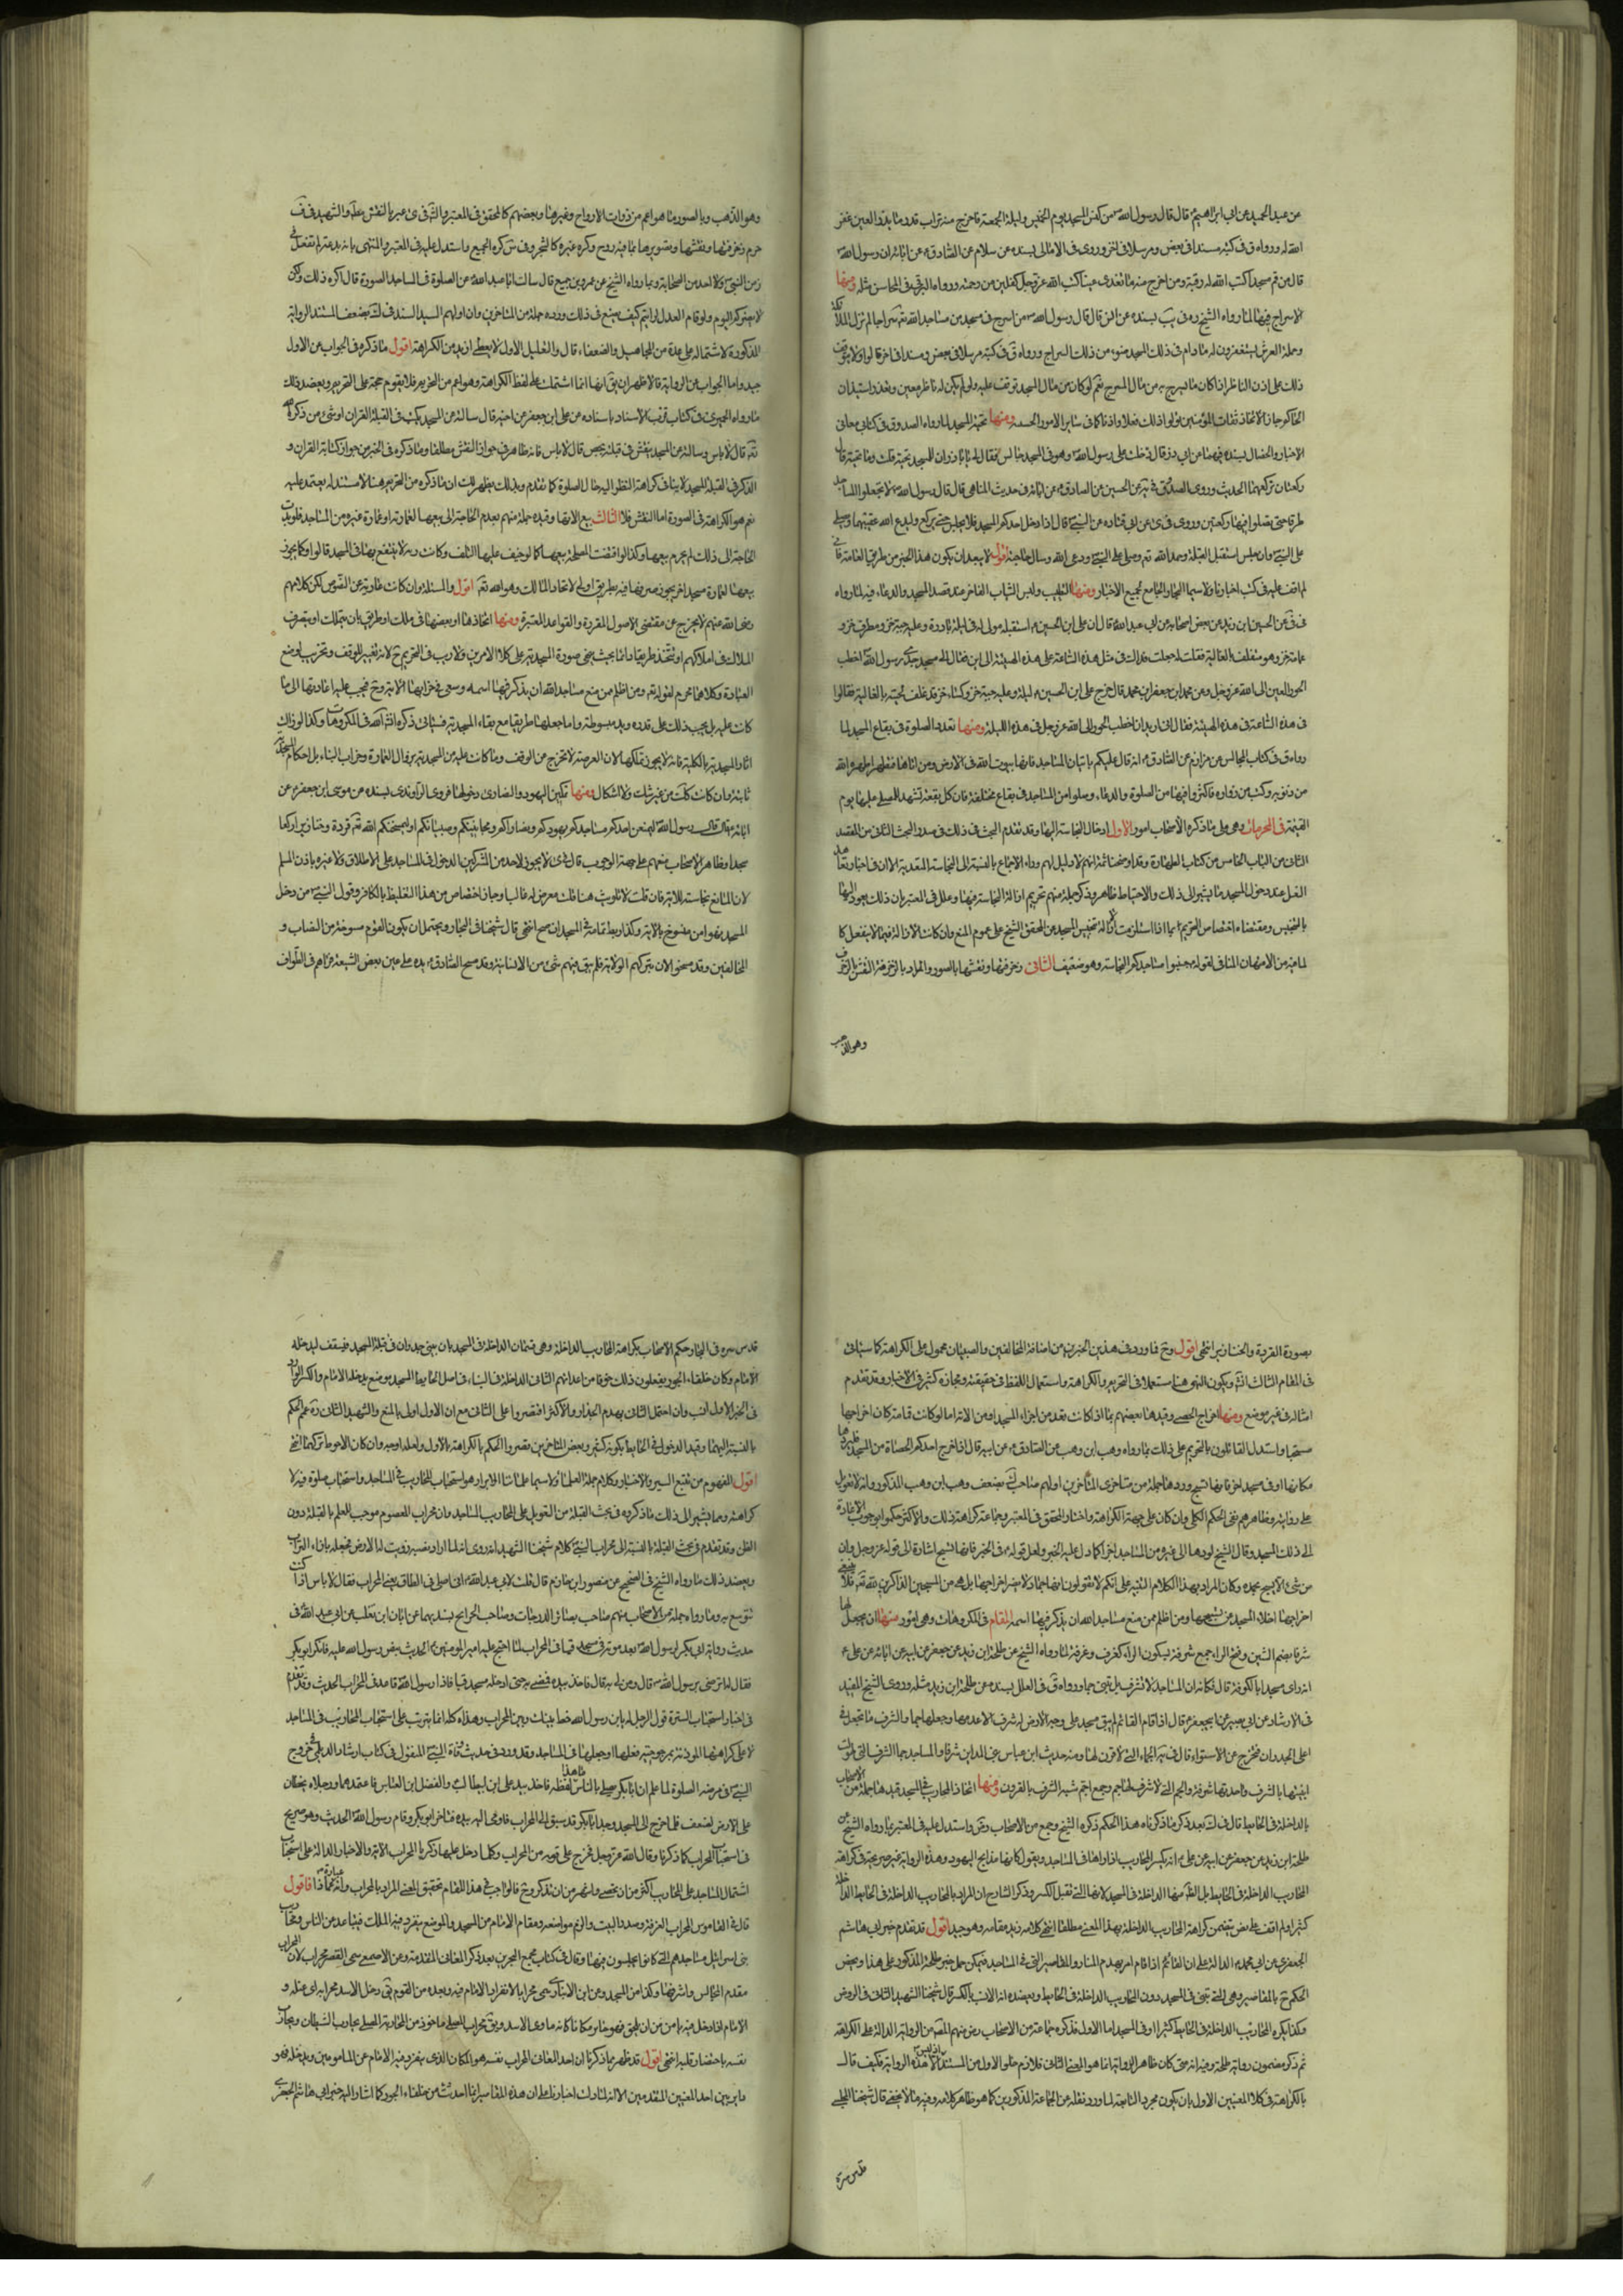 عن عبد الحميد عن ابى ابراهيم ع قال قال رسول الله ص من كنس المسجد يوم الخميس وليلة الجمعة فاخرج منه تراب قدر ما يذر فى العين غفر
الله له ورواه ق فى كتبه مسندا فى بعض ومرسلا فى اخر وروى فى الامالى بسنده عن سلام عن الصادق ع عن ابائه ان رسول الله ص
قال من قم مسجدا كتب الله له عتق رقبة ومن اخرج منه ما تقذى عينا كتب الله عز وجل كفلين من رحمته ورواه البرقى فى المحاسن مثله ومنها
الاسراج فيها لما رواه الشيخ ره فى يب بسنده عن انس قال قال رسول الله ص من اسرج فى مسجد من مساجد الله تع سراجا لم تزل الملائكة
وحملة العرش يستغفرون له ما دام فى ذلك المسجد ضوء من ذلك السراج ورواه ق فى كتبه مرسلا فى بعض ومسندا فى اخر قالوا ولا يتوقف
ذلك على اذن الناظر اذا كان ما يسرج به من مال المسرج نعم لو كان من مال المسجد توقف عليه ولو لم يكن له ناظر معين وتعذر استيذان
الحاكم جاز لاحاد ثقات المؤمنين تولوا ذلك فعلا واذنا كما فى سائر الامور الحسبية ومنها تحية المسجد لما رواه الصدوق فى كتابى معانى
الاخبار والخصال بسنده فيهما عن ابى ذر قال دخلت على رسول الله ص وهو فى المسجد جالس فقال لى يا اباذر ان للمسجد تحية قلت وما تحيته قال
ركعتان تركعهما الحديث وروى الصدوق فى يه عن الحسين عن الصادق ع عن ابائه فى حديث المناهى قال قال رسول الله ص لا تجعلوا المساجد
طرقا حتى تصلوا فيها ركعتين وروى فى ئ عن ابى قتاده عن النبى ص قال اذا دخل احدكم المسجد فلا يجلس حتى يركع وليدع الله عقيبهما وليصل
على النبى ص وان جلس استقبل القبلة وحمد الله تع وصلى على النبى ص ودعى الله وسال حاجته اقول لا يبعد ان يكون هذا الخبر من طريق العامة فانى
لم اقف عليه فى كتب اخبارنا ولا سيما البحار الجامع لجميع الاخبار ومنها التطيب ولبس الثياب الفاخر عند قصد المسجد والدعاء فيه لما رواه
فى فى عن الحسين ابن زيد عن بعض اصحابه عن ابى عبد الله ع قال ان على ابن الحسين ع استقبله مولى له فى ليلة باردة وعليه جبة خز ومطرف خز و
عمامة خز وهو متغلف بالغالية فقلت له جعلت فداك فى مثل هذه الساعة على هذه الهيئة الى اين فقال الى مسجد جدى رسول الله ص اخطب
الحور العين الى الله عز وجل وعن محمد ابن جعفر ابن محمد قال خرج على ابن الحسين ع ليلة وعليه جبة خز وكساء خز قد غلف لحيته بالغالية فقالوا
فى هذه الساعة فى هذه الهيئة فقال انى اريد ان اخطب الحور الى الله عز وجل فى هذه الليلة ومنها تعدد الصلوة فى بقاع المسجد لما
رواه ق فى كتاب المجالس عن مرازم عن الصادق ع انه قال عليكم باتيان المساجد فانها بيوت الله فى الارض ومن اتاها متطهرا طهره الله
من ذنوبه وكتب من زواره فاكثروا فيها من الصلوة والدعاء وصلوا من المساجد فى بقاع مختلفة فان كل بقعة تشهد للمصلى عليها يوم
القيمة فى المحرمات وهى على ما ذكره الاصحاب امور الاول ادخال النجاسة اليها وقد تقدم البحث فى ذلك فى صدر البحث الثانى من المقصد
الثانى من الباب الخامس من كتاب الطهارة وقد اوضحنا ثمة انهم لا دليل لهم وراء الاجماع بالنسبة الى النجاسة المتعدية الا ان فى اخبار تعاهد
النعل عند دخول المسجد ما يشير الى ذلك والاحتياط ظاهر وذكر جملة منهم تحريم ازالة النجاسة فيها وعلل فى المعتبر بان ذلك يعود اليها
بالتنجيس ومقتضاه اختصاص التحريم بما اذا استلزمت الازالة تنجيس المسجد عن المحقق الشيخ على عموم المنع وان كانت الازالة فيما لا ينفعل كا
لما فيه من الامتهان المنافى لقوله ص جنبوا مساجدكم النجاسة وهو ضعيف الثانى زخرفتها ونقشها بالصور والمراد بالزخرفة النقش بالزخرف
وهو الذهب
وهو الذهب وبالصور ما هو اعم من ذوات الارواح وغيرها وبعضهم كالمحقق فى المعتبر والشهيد فى ى عبر بالنقش علما والشهيد فى ن
حرم زخرفتها ونقشها وتصويرها بما فيه روح وكره غيره كالشجر وفى س كره الجميع واستدل عليه فى المعتبر والمنتهى بانه بدعة لم تفعل فى
زمن النبى ص ولا احد من الصحابة وبما رواه الشيخ عن عمرو بن جميع قال سالت ابا عبد الله ع عن الصلوة فى المساجد المصورة قال اكره ذلك ولكن
لا يضركم اليوم ولو قام العدل لرايتم كيف يصنع فى ذلك ورده جملة من المتاخرين وان اولهم السيد السند فى ك بضعف المستند الرواية
المذكورة لاشتماله على عدة من المجاهيل والضعفاء قال والتعليل الاول لا يعطى ازيد من الكراهة اقول ما ذكره فى الجواب عن الاول
جيد واما الجواب عن الرواية فالاظهر ان يق انها انما اشتملت على لفظ الكراهة وهو اعم من التحريم فلا يقوم حجة على التحريم ويعضد ذلك
ما رواه الحميرى فى كتاب قرب الاسناد باسناده عن على ابن جعفر عن اخيه قال سالته عن المسجد يكتب فى القبلة القران او شئ من ذكر الله
تع قال لا باس وسالته عن المسجد ينقش فى قبلته بجص قال لا باس فانه ظاهر فى جواز النقش مطلقا وما ذكره فى الخبر من جواز كتابة القران و
الذكر فى القبلة المسجد لا ينافى كراهة النظر اليه حال الصلوة كما تقدم وبذلك يظهر لك ان ما ذكره من التحريم هنا لا مستند له يعتمد عليه
نعم هو الكراهة فى الصورة اما النقش فلا الثالث بيع الاتها وقيده جملة منهم بعدم الحاجة الى بيعها لعمارته او عمارة غيره من المساجد فلو دعت
الحاجة الى ذلك لم يحرم بيعها وكذا لو اقتضت المصلحة بيعها كما لو خيف عليها التلف وكانت رثة لا ينتفع بها فى المسجد قالوا وكما يجوز
بيعها لعمارة مسجد اخر يجوز صرفها فيه بطريق اولى لاتحاد المالك وهو الله تع اقول والمسئلة وان كانت عارية عن النصوص لكن كلامهم
رضى الله عنهم لا يخرج عن مقتضى الاصول المقررة والقواعد المعتبرة ومنها اتخاذها او بعضها فى ملك او طريق بان يتملك او يتصرف
الملاك فى املاكهم او تتخذ طريقا دائما بحيث يمحى صورة المسجدية على كلا الامرين ولا ريب فى التحريم ح لانه تغيير للوقف وتخريب لوضع
العبادة وكلاهما محرم لقوله تع ومن اظلم ممن منع مساجد الله ان يذكر فيها اسمه وسعى فى خرابها الاية وح فيجب عليه اعادتها الى ما
كانت عليه بل يجب ذلك على قدره ويد مبسوطة واما جعلها طريقا مع بقاء المسجدية فسياتى ذكره انش الله فى المكروهات وكذا لو زالت
اثار المسجدية بالكلية فانه لا يجوز تملكها لان العرصة لا تخرج عن الوقف وما كانت عليه من المسجدية بزوال العمارة وخراب البناء بل احكام المسجدية
ثابتة وان كانت كلت من غير شك ولا اشكال ومنها تمكين اليهود والنصارى دخولها فروى الراوندى بسنده عن موسى ابن جعفر ع عن
ابائه ع قال قال رسول الله ص ليمنعن احدكم مساجدكم يهودكم ونصاراكم ومجانينكم وصبيانكم او ليمسخنكم الله تع قردة وخنازير ركعا
سجدا وظاهر الاصحاب منعهم على جهة الوجوب قال فى ى لا يجوز لاحد من المشركين الدخول فى المساجد على الاطلاق ولا عبرة باذن المسلم
لان المانع نجاسته للاية فان قلت لا تلويث هنا قلت معرض له غالبا وجاز اختصاص من هذا التغليظ بالكافر وقول النبى ص من دخل
المسجد فهو امن منسوخ بالاية وكذا ربط ثمامة فى المسجد ان صح انتهى قال شيخنا فى البحار ويحتمل ان يكون القوم مسوخة من النصاب و
المخالفين وقد مسخوا الان بتركهم الولاية فلم يبق فيهم شئ من الانسانية وقد مسح الصادق ع يده على عين بعض الشيعة فراهم فى الطواف
بصورة القردة والخنازير انتهى اقول وح فما ورد فى هذين الخبرين من اضافة المخالفين والصبيان محمول على الكراهة كما سياتى
فى المقام الثالث انش ويكون النهى هنا مستعملا فى التحريم والكراهة واستعمال اللفظ فى حقيقته ومجازه كثير فى الاخبار وقد تقدم
امثاله فى غير موضع ومنها اخراج الحصى وقيدها بعضهم بما اذا كانت تعد من اجزاء المسجد او من الاته اما لو كانت قمامة كان اخراجها
مستحبا واستدل القائلون بالتحريم على ذلك بما رواه وهب ابن وهب عن الصادق ع عن ابيه قال اذا اخرج احدكم الحصاة من المسجد فليردها
مكانها او فى مسجد اخر فانها تسبح ورودها جملة من متاخرى المتاخرين اولهم صاحب ك بضعف وهب ابن وهب المذكور وانه لا تعويل
على روايته وظاهرهم نفى الحكم الكلى وان كان على جهة الكراهة واختار المحقق فى المعتبر وجماعة كراهة ذلك والاكثر حكموا بوجوب الاعادة
الى ذلك المسجد وقال الشيخ لو ردها الى غيره من المساجد اجزا كما دل عليه الخبر ولعل قوله ع فى الخبر فانها تسبح اشارة الى قوله عز وجل وان
من شئ الا يسبح بحمده وكان المراد بهذا الكلام التنبيه على انكم لا تقولون انها جماد لا يضر اخراجها بل هى من المسبحين الذاكرين لله تع فلا ينبغى
اخراجها اخلاء المسجد عن تسبيحها ومن اظلم ممن منع مساجد الله ان يذكر فيها اسمه المقام فى المكروهات وهى امور منها ان يجعل لها
شرفا بضم الشين وفتح الراء جمع شرفة بسكون الراء كغرف وغرفة لما رواه الشيخ عن طلحة ابن زيد عن جعفر عن ابيه عن ابائه عن على ع
انه راى مسجدا بالكوفة قال فكانه ان المساجد لا تشرف بل تبنى جما ورواه ق فى العلل بسنده عن طلحة ابن زيد مثله وروى الشيخ المفيد
فى الارشاد عن ابى بصير عن ابى جعفر ع قال اذا قام القائم لم يبق مسجد على وجه الارض له شرف الا هدمها وجعلها جما والشرف ما تجعل فى
اعلى الجدران فتخرج عن الاستواء قال فى يه الجماء التى لا قرون لها ومنه حديث ابن عباس نبنى المداين شرفا والمساجد جما الشرف التى طولت
ابنيتها بالشرف واحدتها شرفة والجم التى لا شرف لها جم وجمع اجم شبه الشرف بالقرون ومنها اتخاذ المحاريب فى المسجد قيد هنا جملة من الاصحاب
بالداخلة فى الحائط قال فى ك بعد ذكر ما ذكرناه هذا الحكم ذكره الشيخ وجمع من الاصحاب وق واستدل عليه فى المعتبر بما رواه الشيخ عن
طلحة ابن زيد عن جعفر عن ابيه عن على ع انه يكسر المحاريب اذا راها فى المساجد ويقول كانها مذابح اليهود وهذه الرواية غير صريحة فى كراهة
المحاريب الداخلة فى الحائط بل الظ منها الداخلة فى المسجد لانها التى تقبل الكسر وذكر الشارح ان المراد بالمحاريب الداخلة فى الحائط الداخلة
كثيرا ولم اقف على نص يتضمن كراهة المحاريب الداخلة بهذا المعنى مطلقا انتهى كلامه زيد مقامه وهو جيد اقول قد تقدم خبر ابى هاشم
الجعفرى عن ابى محمد ع الدالة على ان القائم اذا قام امر بهدم المنار والمقاصير التى فى المساجد فيمكن حمل خبر طلحة المذكور على هذا وبعض
الحكم ح بالمقاصير وهى التى تبنى فى المسجد دون المحاريب الداخلة فى الحائط ويعضده انه الانسب بالكسر قال شيخنا الشهيد الثانى فى الروض
وكذا يكره المحاريب الداخلة فى الحائط كثيرا او فى المسجد اما الاول فذكره جماعة من الاصحاب رض منهم المص من الرواية الدالة على الكراهة
ثم ذكر مضمون رواية طلحة وفيه انه متى كان ظاهر الرواية انما هو المعنى الثانى فلازم خلو الاول من المستند اذ ليس الا هذه الرواية فكيف قال
بالكراهة فى كلا المعنيين الاول بان يكون مجرد التابعة لما ورد ونقله عن الجماعة المذكورين كما هو ظاهر كلامه وفيه ما لا يخفى قال شيخنا المجلسى
قدس سره
قدس سره فى البحار وحكم الاصحاب بكراهة المحاريب الداخلة وهى قسمان الداخلة فى المسجد بان يبنى جدران فى قبلة المسجد فيسقف ليدخله
الامام وكان خلفاء الجور يفعلون ذلك خوفا من اعدائهم الثانى الداخلة فى البناء فى اصل الحائط المسجد بموضع يدخله الامام والكسر الوارد
فى الخبر الاول انسب وان احتمل الثانى بهدم الجدار والاكثر اقتصروا على الثانى مع ان الاول اولى بالمنع والشهيد الثانى ره عمم الحكم
بالنسبة اليهما وقيد الدخول فى الحائط بكونه كثيرا وبعض المتاخرين قصروا الحكم بالكراهة بالاول ولعله اوجه وان كان الاحوط تركهما انتهى
اقول المفهوم من تتبع السير والاخبار وكلام جملة العلماء ولا سيما علمائنا الابرار هو استحباب المحاريب فى المساجد واستحباب صلوته فيه لا
كراهته ومما يشير الى ذلك ما ذكروه فى بحث القبلة من التعويل على المحاريب المساجد وان محراب المعصوم موجب للعلم بالقبلة دون
الظن وقد تقدم فى بحث القبلة بالنسبة الى محراب النبى ص كلام شيخنا الشهيد انه روى انه لما اراد نصبه زويت له الارض فجعله بازاء الميزاب
ويعضد ذلك ما رواه الشيخ فى الصحيح عن منصور ابن حازم قال قلت لابى عبد الله ع انى اصلى فى الطاق يعنى المحراب فقال لا باس اذا كنت
تتوسع به وما رواه جملة من الاصحاب منهم صاحب بصائر الدرجات وصاحب الخرايج بسنديهما عن ابان ابن تغلب عن ابى عبد الله ع فى
حديث رواية ابى بكر لرسول الله ص بعد موته فى مسجد قبا فى المحراب لما احتج عليه امير المومنين ع بالحديث ببعض رسول الله عليه فانكر ابو بكر
فقال اما ترضى برسول الله ص قال ومن لى به قال فاخذ بيده فمضى به حتى ادخله مسجد قبا فاذا رسول الله ص قاعد فى المحراب الحديث وقد تقدم
فى اخبار استحباب السترة قول الرجل له يابن رسول الله خط بينك وبين المحراب وهذا كله انما يترتب على استحباب المحاريب فى المساجد
لا على كراهتها الموذنة بمرجوحية فعلها او جعلها فى المساجد وقد ورد فى حديث وفاة النبى ص المنقول فى كتاب ارشاد الديلمى خروج
النبى ص فى مرضه الصلوة لما علم ان ابا بكر يصلى بالناس ما هذا لفظه فاخذ بيد على ابن ابيطالب والفضل ابن العباس فاعتمدهما ورجلاه يخطان
على الارض لضعف فلما خرج الى المسجد وجد ابا بكر قد سبق الى المحراب فاومى اليه بيده فتاخر ابو بكر وقام رسول الله ص الحديث وهو صريح
فى استحباب المحراب كما ذكرنا وقال الله عز وجل فخرج على قومه من المحراب وكلما دخل عليها زكريا المحراب الاية والاخبار الدالة على استحباب
اشتمال المساجد على المحاريب اكثر من ان تحصى واشهر من ان تذكر وح فالواجب فى هذا المقام تحقيق المعنى المراد بالمحراب وانه عبارة عن ماذا فاقول
قال فى القاموس المحراب الغرفة وصدر البيت واكرم مواضعه ومقام الامام من المسجد والموضع ينفرد فيه الملك فيتباعد من الناس ومحاريب
بنى اسرائيل مساجدهم التى كانوا يجلسون فيها وقال فى كتاب مجمع البحرين بعد ذكر المعانى المتقدمة وعن الاصمعى سمى القصر محراب لان المحراب
مقدم المجالس واشرفها وكذا من المسجد وعن ابن الانبارى سمى محرابا لانفراد الامام فيه وبعده من القوم يق دخل الاسد محرابه اى غيله و
الامام اذا دخل فيه يامن من ان يلحق فهو حاير مكانا كانه ماوى الاسد ويق محراب المصلى ماخوذ من المحاربة المصلى يحارب الشيطان ويحارب
نفسه باحضار قلبه انتهى اقول قد ظهر بما ذكرنا ان احد المعانى المحراب نفسه هو المكان الذى ينفرد فيه الامام عن المامومين ويدخله فهو
دائر بين احد المعنيين المتقدمين الا انه لما دلت اخبارنا على ان هذه المقاصير انما احدثت من خلفاء الجور كما اشار اليه خبر ابى هاشم الجعفرى